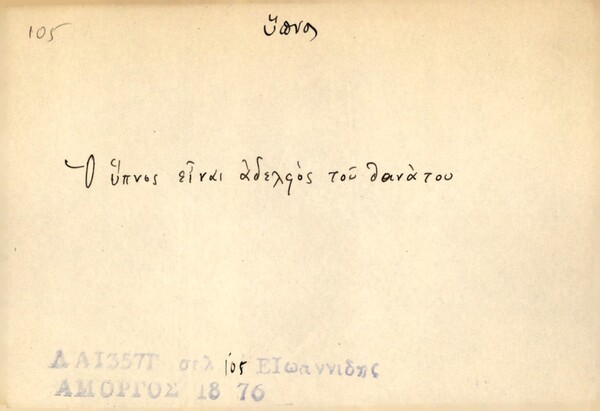 105
ὕπνος
Ὁ ὕπνος εἶναι ἀδελφὸς τοῦ θανάτου
ΔΑ1357Γ σελ 105 ΕΙωαννιδης
ΑΜΟΡΓΟΣ 18 76